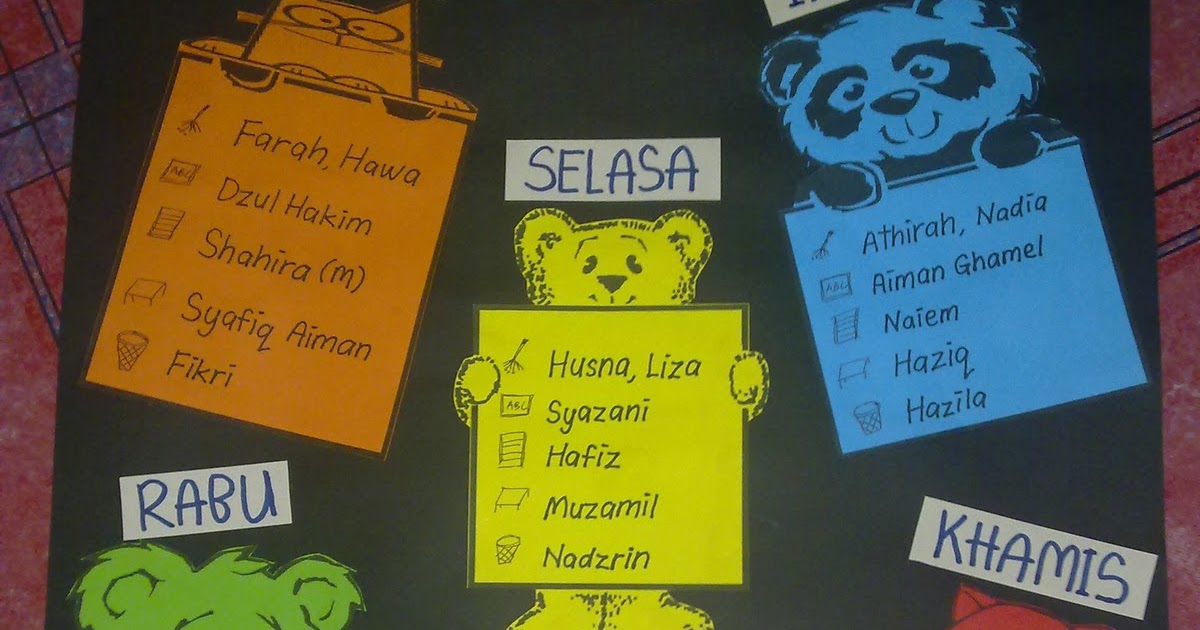 Farah, Hawa
ABC
Dzul Hakim
Shahira (m)
Syafiq Aiman
Fikri
SELASA
Husna, Liza
ABC
Syazani
Hafiz
Muzamil
Nadzrin
Athirah, Nadia
ABC
Aiman Ghamel
Naiem
Haziq
Hazila
RABU
KHAMIS